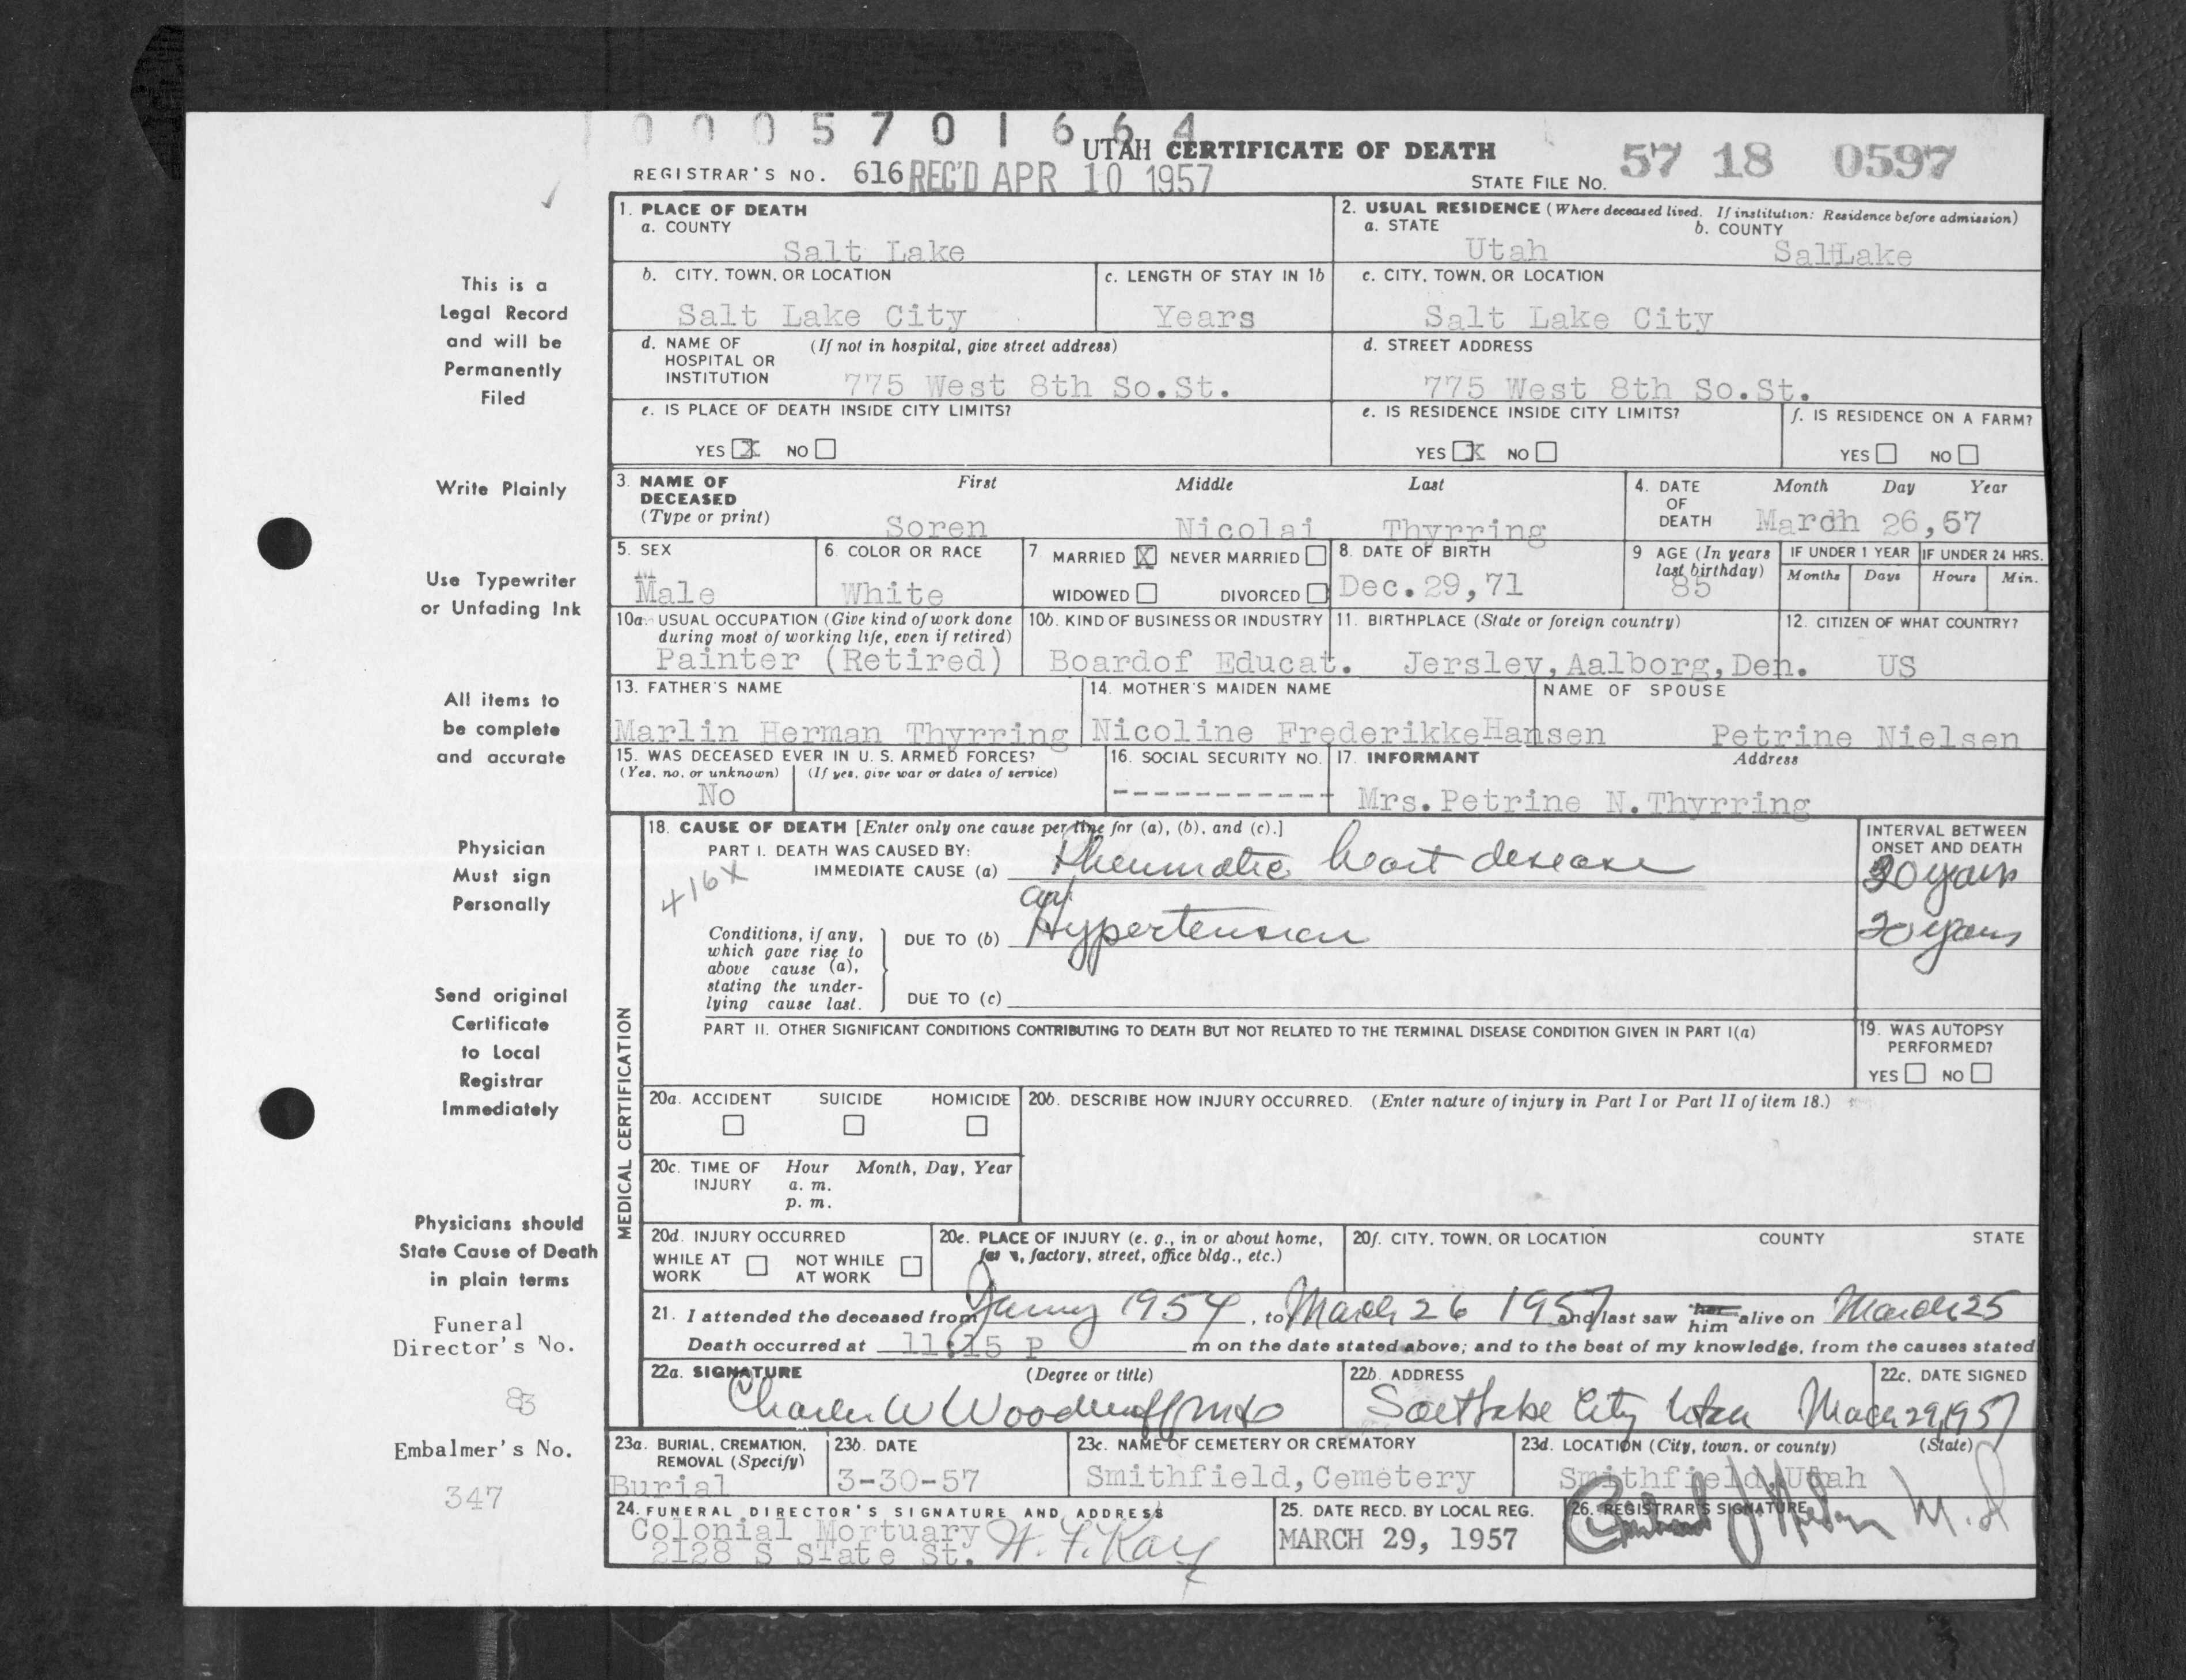 0005701664
UTAH CERTIFICATE OF DEATH
REGISTRAR'S NO. 616 REC'D APR 10 1957
STATE FILE NO. 57 18 0597
This is a
Legal Record
and will be
Permanently
Filed
Write Plainly
Use Typewriter
or Unfading Ink
All items to
be complete
and accurate
Physician
Must sign
Personally
Send original
Certificate
to Local
Registrar
Immediately
Physicians should
State Cause of Death
in plain terms
Funeral
Director's No.
83
Embalmer's No.
347
1. PLACE OF DEATH
a. COUNTY
Salt Lake
2. USUAL RESIDENCE (Where deceased lived. If institution: Residence before admission)
a. STATE
b. COUNTY
Utah
SaltLake
b. CITY, TOWN, OR LOCATION
c. LENGTH OF STAY IN 1b
c. CITY, TOWN, OR LOCATION
Salt Lake City
Years
Salt Lake City
d. NAME OF
HOSPITAL OR
INSTITUTION
(If not in hospital, give street address)
775 West 8th So.St.
d. STREET ADDRESS
775 West 8th So.St.
e. IS PLACE OF DEATH INSIDE CITY LIMITS?
YES X NO
e. IS RESIDENCE INSIDE CITY LIMITS?
YES X NO
f. IS RESIDENCE ON A FARM?
YES NO
3. NAME OF
DECEASED
(Type or print)
First Middle Last
Soren Nicolai Thyrring
4. DATE
OF
DEATH
Month Day Year
March 26,57
5. SEX
Male
6. COLOR OR RACE
White
7 MARRIED X NEVER MARRIED
WIDOWED DIVORCED
8. DATE OF BIRTH
Dec.29,71
9 AGE (In years
last birthday)
85
IF UNDER 1 YEAR
Months Days
IF UNDER 24 HRS.
Hours Min.
10a. USUAL OCCUPATION (Give kind of work done
during most of working life, even if retired)
Painter (Retired)
10b. KIND OF BUSINESS OR INDUSTRY
Boardof Educat.
11. BIRTHPLACE (State or foreign country)
Jerslev,Aalborg,Den.
12. CITIZEN OF WHAT COUNTRY?
US
13. FATHER'S NAME
Marlin Herman Thyrring
14. MOTHER'S MAIDEN NAME
Nicoline FrederikkeHansen
NAME OF SPOUSE
Petrine Nielsen
15. WAS DECEASED EVER IN U. S. ARMED FORCES?
(Yes, no, or unknown) (If yes, give war or dates of service)
No
16. SOCIAL SECURITY NO.
-----------
17. INFORMANT
Address
Mrs.Petrine N.Thyrring
MEDICAL CERTIFICATION
18. CAUSE OF DEATH [Enter only one cause per line for (a), (b), and (c).]
INTERVAL BETWEEN
ONSET AND DEATH
PART I. DEATH WAS CAUSED BY:
IMMEDIATE CAUSE (a) Rheumatic heart disease
20 years
416X
and
Conditions, if any,
which gave rise to
above cause (a),
stating the under-
lying cause last.
DUE TO (b) Hypertension
20 years
DUE TO (c)
PART II. OTHER SIGNIFICANT CONDITIONS CONTRIBUTING TO DEATH BUT NOT RELATED TO THE TERMINAL DISEASE CONDITION GIVEN IN PART I(a)
19. WAS AUTOPSY
PERFORMED?
YES NO
20a. ACCIDENT SUICIDE HOMICIDE
20b. DESCRIBE HOW INJURY OCCURRED. (Enter nature of injury in Part I or Part II of item 18.)
20c. TIME OF
INJURY
Hour Month, Day, Year
a. m.
p. m.
20d. INJURY OCCURRED
WHILE AT
WORK
NOT WHILE
AT WORK
20e. PLACE OF INJURY (e. g., in or about home,
farm, factory, street, office bldg., etc.)
20f. CITY, TOWN, OR LOCATION COUNTY STATE
21. I attended the deceased from 1954, to March 26 1957 and last saw her him alive on March 25
Death occurred at 11:15 P m on the date stated above; and to the best of my knowledge, from the causes stated
22a. SIGNATURE (Degree or title)
Charles W Woodruff MD
22b. ADDRESS
Salt Lake City Utah
22c. DATE SIGNED
March 29, 1957
23a. BURIAL, CREMATION,
REMOVAL (Specify)
Burial
23b. DATE
3-30-57
23c. NAME OF CEMETERY OR CREMATORY
Smithfield,Cemetery
23d. LOCATION (City, town, or county) (State)
Smithfield,Utah
24. FUNERAL DIRECTOR'S SIGNATURE AND ADDRESS
Colonial Mortuary
2128 S State St.
25. DATE RECD. BY LOCAL REG.
MARCH 29, 1957
26. REGISTRAR'S SIGNATURE
M.D